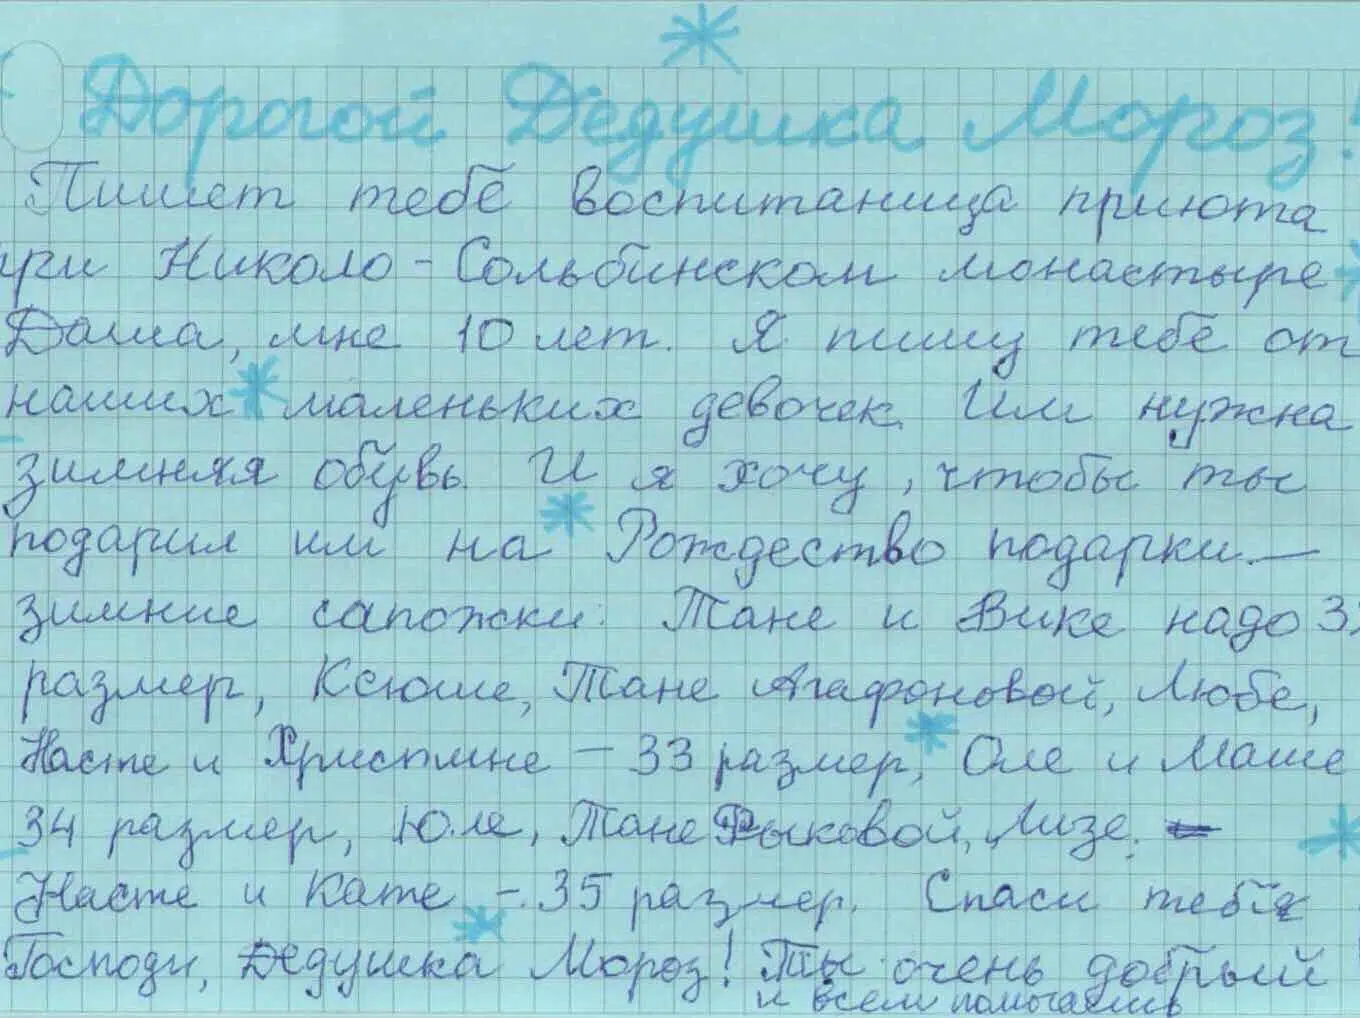 Дорогой Дедушка Мороз!
Пишет тебе воспитаница приюта
при Николо-Сольбинском монастыре
Даша, мне 10 лет. Я пишу тебе от
наших маленьких девочек. Им нужна
зимняя обувь. И я хочу, чтобы ты
подарил им на Рождество подарки —
зимние сапожки. Тане и Вике надо
размер, Ксюше, Тане Агафоновой, Любе,
Насте и Христине – 33 размер, Оле и Маше
34 размер, Юле, Тане Рыковой, Лизе,
Насте и Кате – 35 размер. Спаси тебя
Господи, Дедушка Мороз! Ты очень добрый
и всем помогаешь